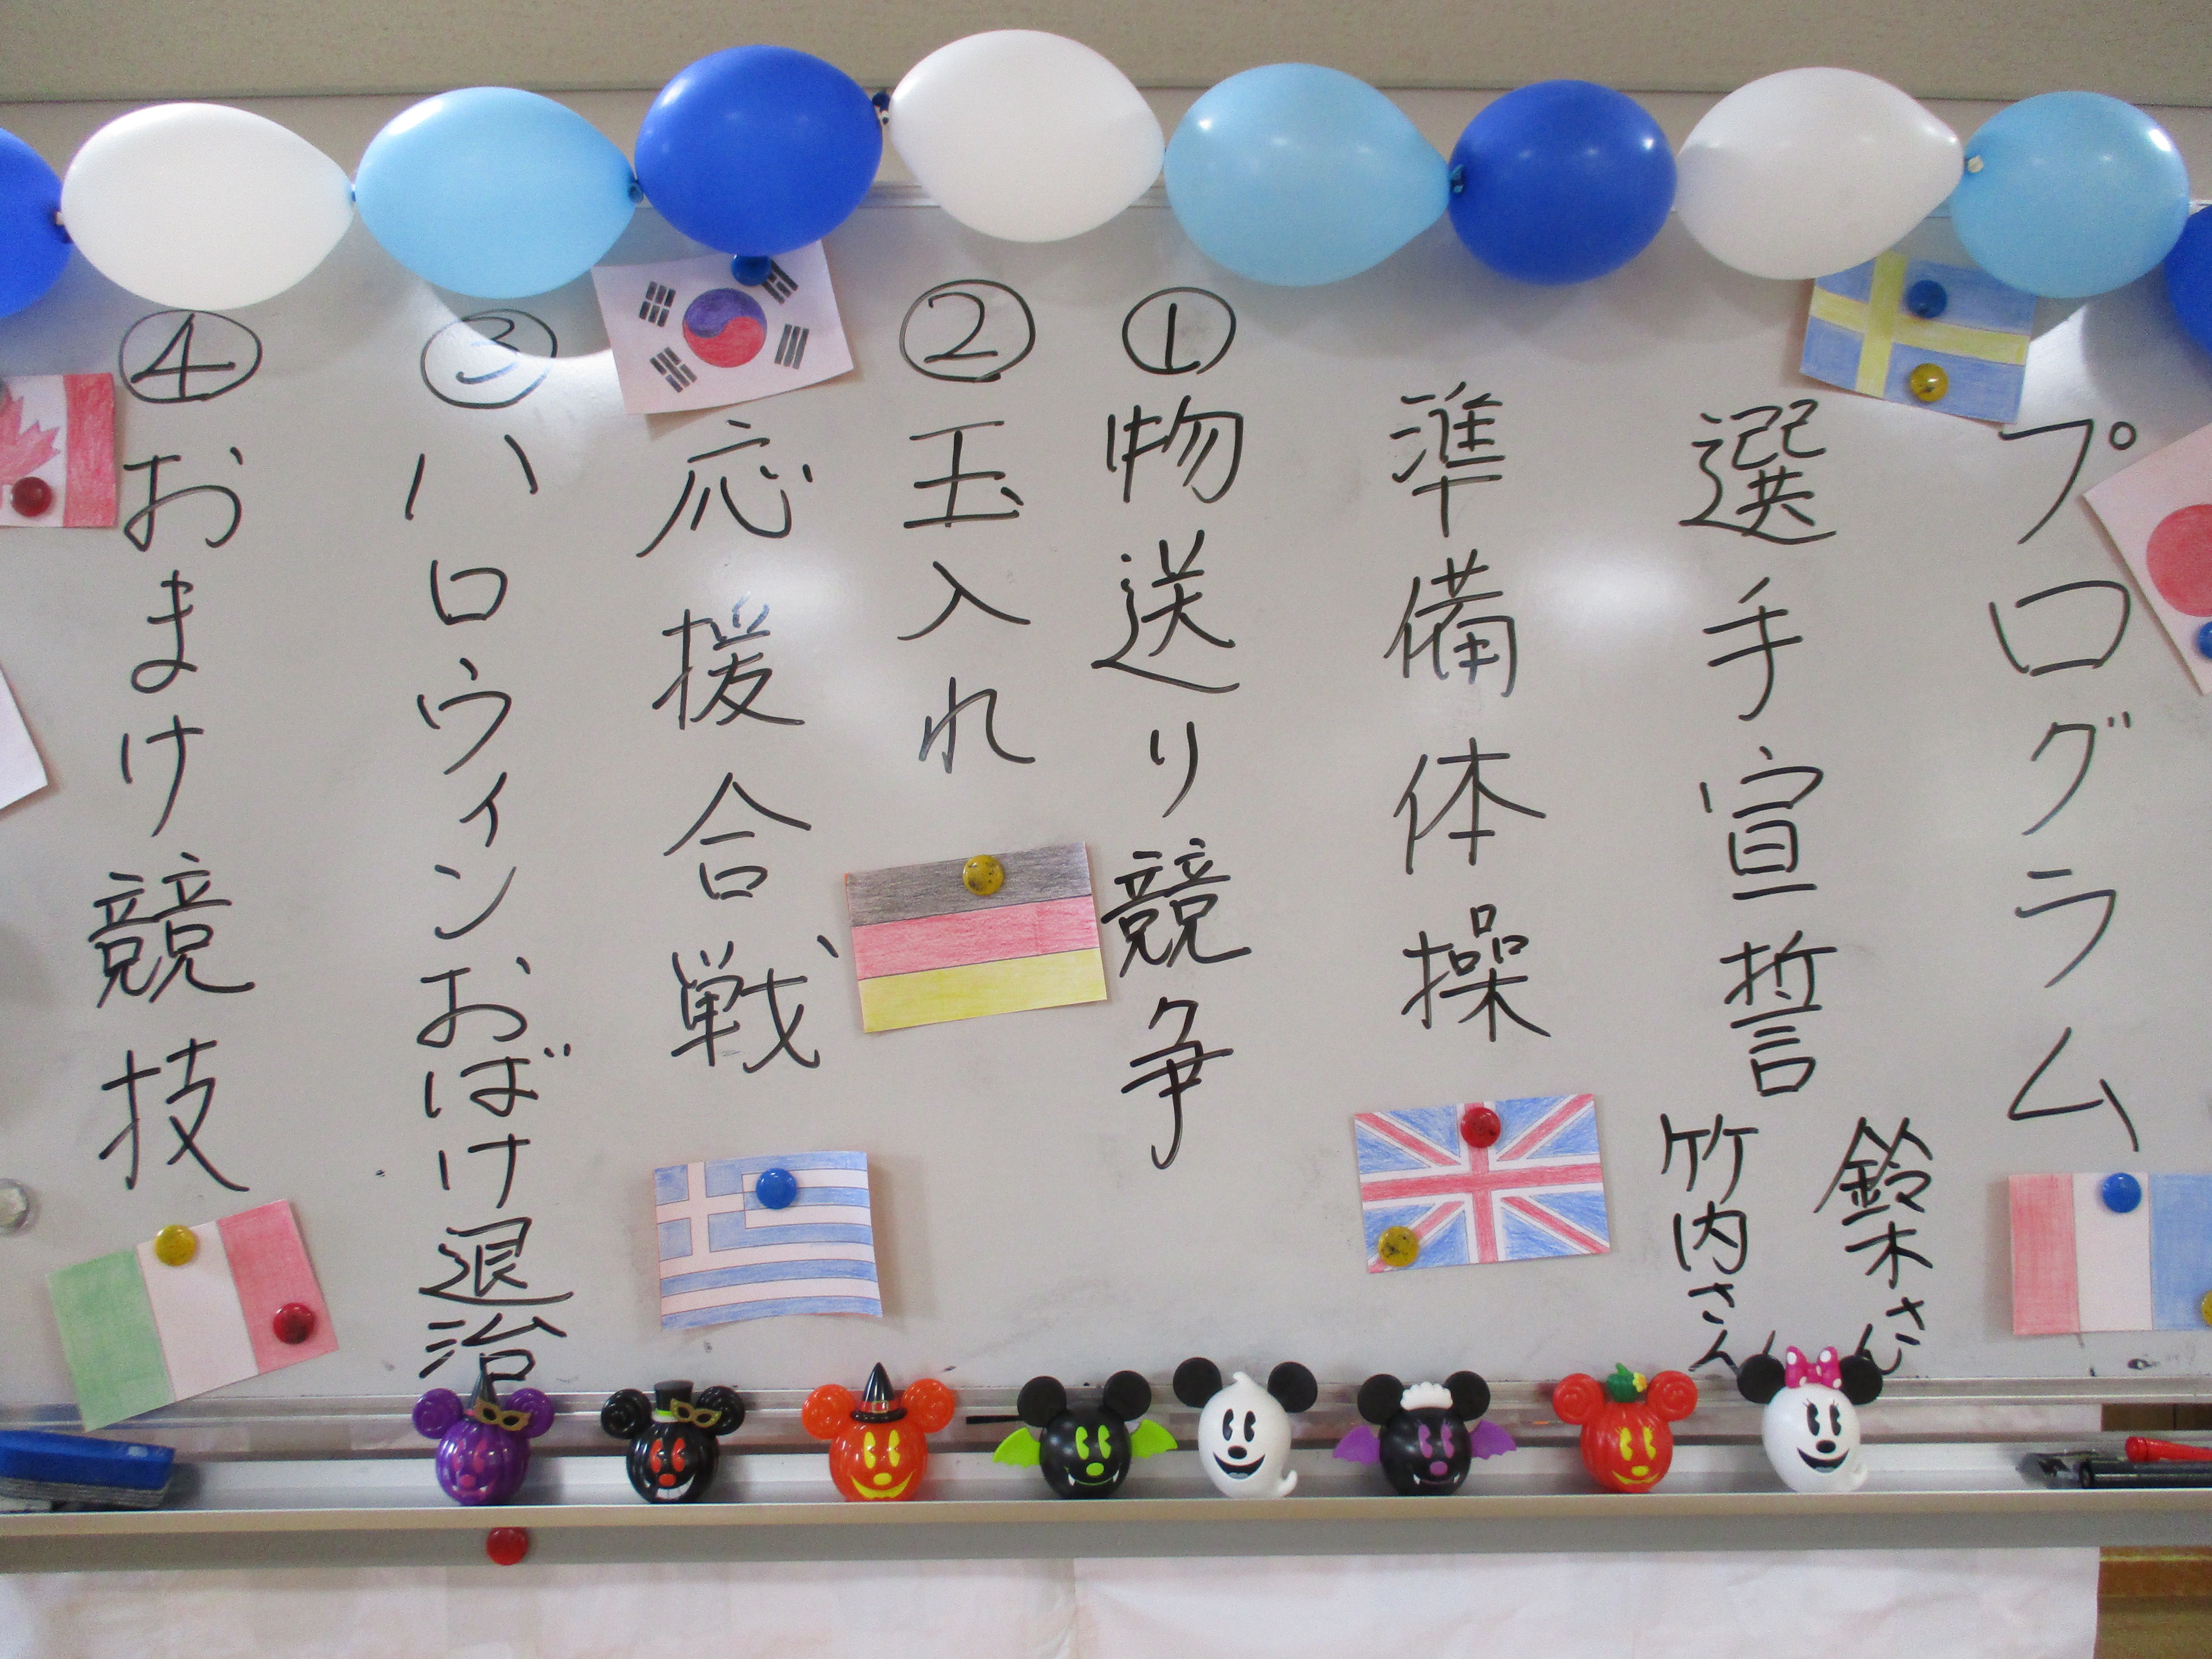 プログラム
選手宣誓
鈴木さん
竹内さん
準備体操
①物送り競争
②玉入れ
応援合戦
③ハロウィンおばけ退治
④おまけ競技